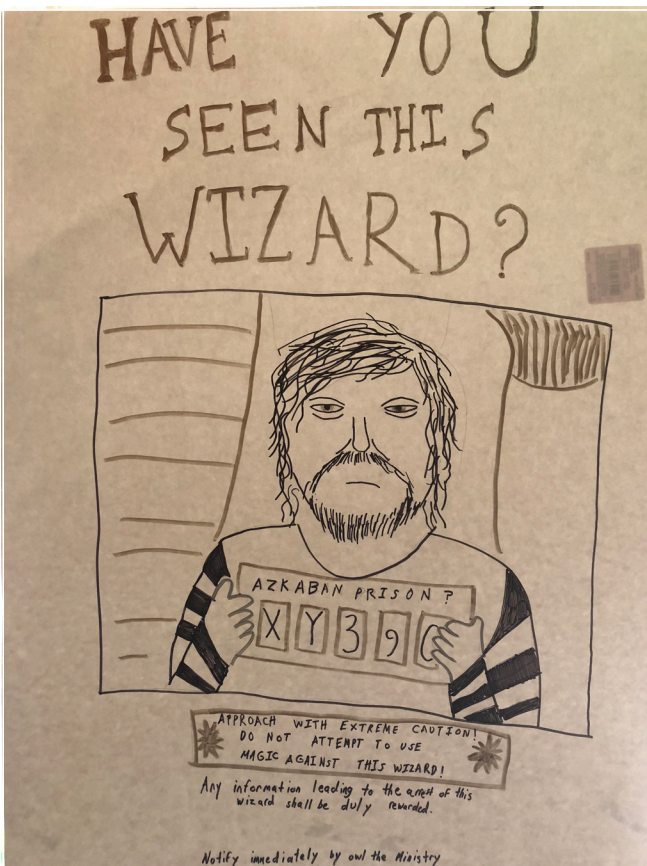 HAVE YOU
SEEN THIS
WIZARD?
AZKABAN PRISON?
XY39
APPROACH WITH EXTREME CAUTION!
DO NOT ATTEMPT TO USE
MAGIC AGAINST THIS WIZARD!
Any information leading to the arrest of this
wizard shall be duly rewarded.
Notify immediately by owl the Ministry